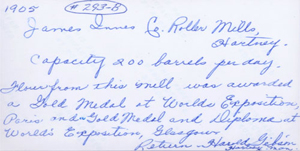 1905 #293-B
James Innes Co. Roller Mills,
Hartney.
Capacity 200 barrels per day.
Flour from this mill was awarded
a Gold Medal at Worlds Exposition,
Paris and a Gold Medal and Diploma at
World's Exposition, Glasgow.
Return - Harold